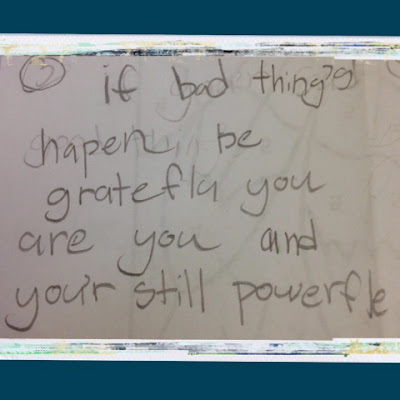 ② if bad thing's
hapen be
grateflu you
are you and
your'r still powerfle